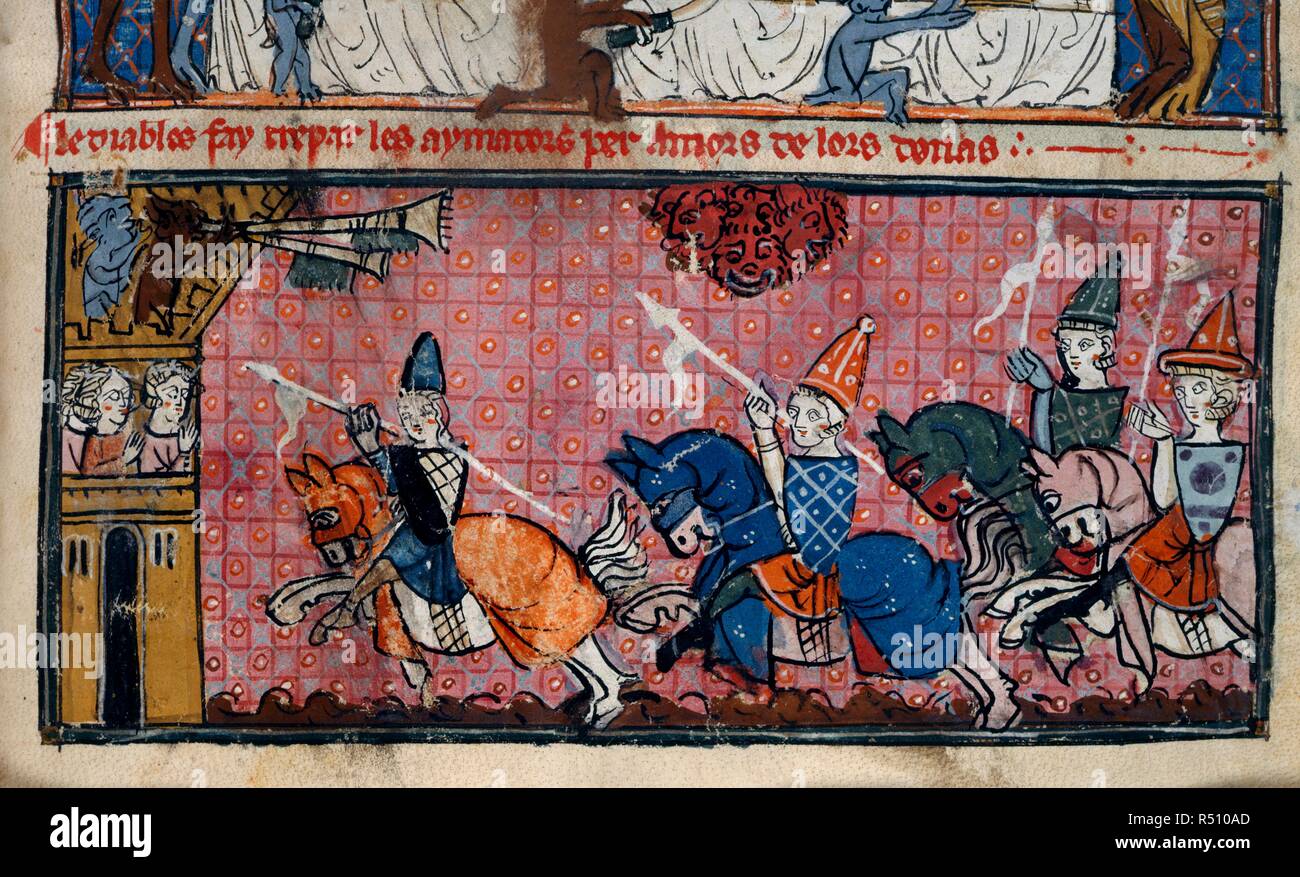 Le diables fay trepar les aymadors per amors de lors donas
alamy
alamy
Image ID: R510AD
www.alamy.com